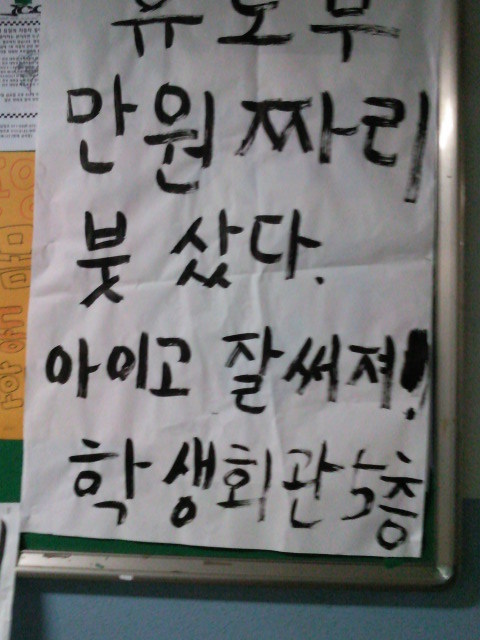 유노부
만원짜리
붓 샀다.
아이고 잘써져!
학생회관 5층